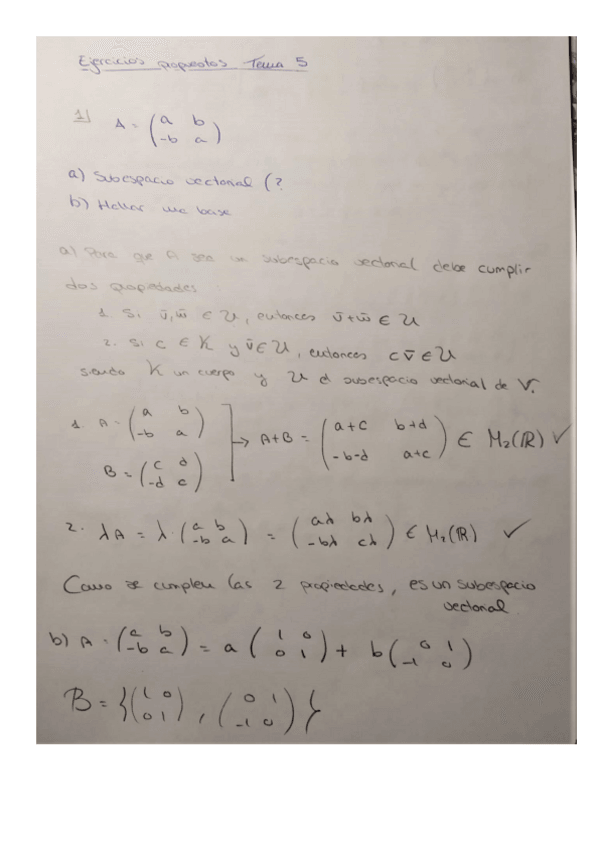 Ejercicios propuestos Tema 5
1) A = (a b; -b a)
a) Subespacio vectorial (?
b) Hallar una base
a) Para que A sea un subespacio vectorial debe cumplir
dos propiedades
1. Si v̄, w̄ ∈ U, entonces v̄+w̄ ∈ U
2. Si c ∈ K y v̄ ∈ U, entonces c v̄ ∈ U
siendo K un cuerpo y U el subespacio vectorial de V.
1. A = (a b; -b a)
B = (c d; -d c) → A+B = (a+c b+d; -b-d a+c) ∈ M₂(ℝ) ✓
2. λA = λ·(a b; -b a) = (aλ bλ; -bλ aλ) ∈ M₂(ℝ) ✓
Como se cumplen las 2 propiedades, es un subespacio
vectorial
b) A = (a b; -b a) = a (1 0; 0 1) + b (0 1; -1 0)
B = {(1 0; 0 1), (0 1; -1 0)}